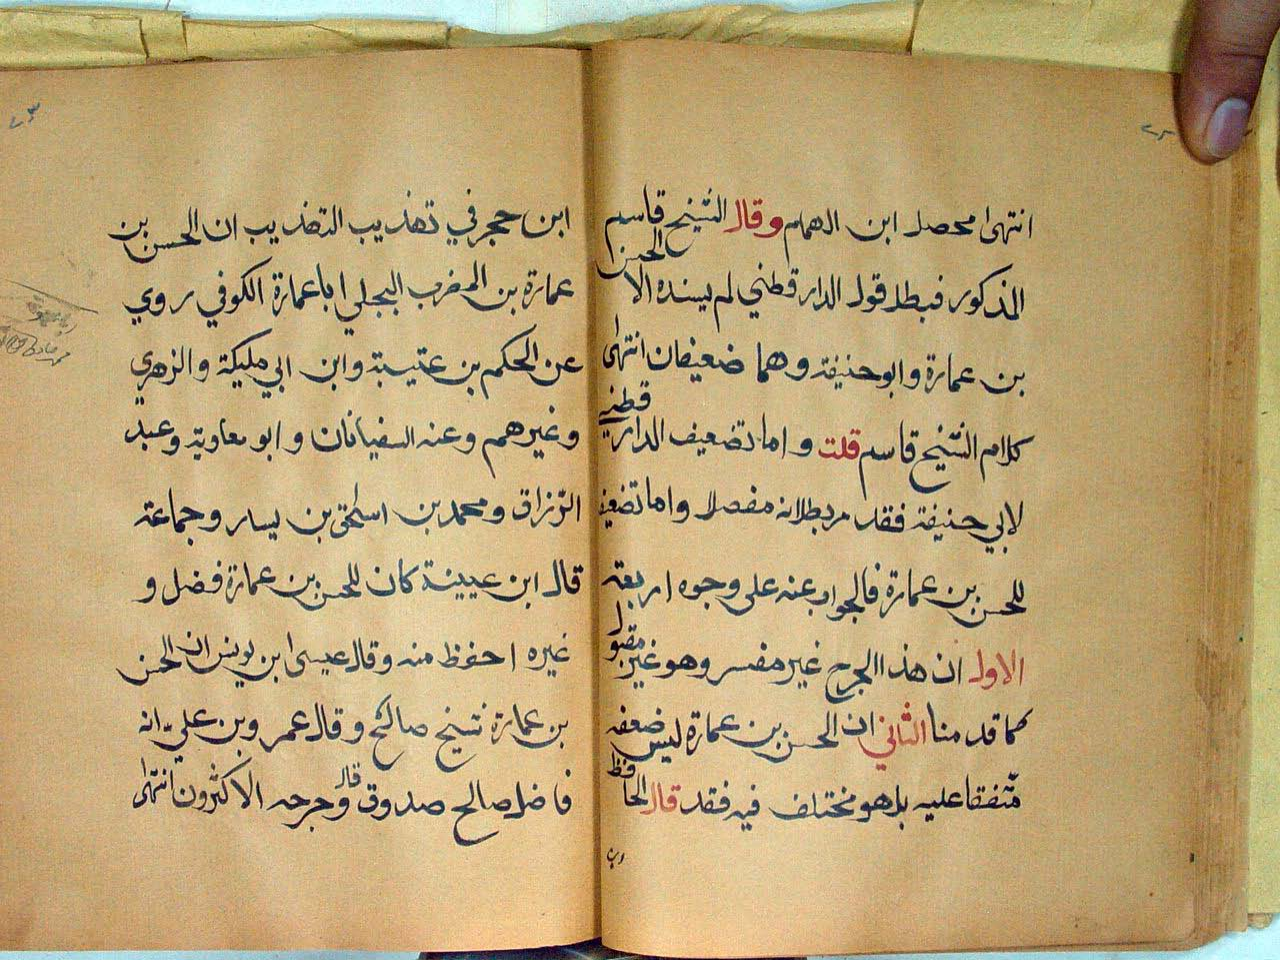 انتهى محصل ابن الهمام وقال الشيخ قاسم
المذكور فبطل قول الدارقطني لم يسنده الا الحسن
بن عمارة وابو حنيفة وهما ضعيفان انتهى
كلام الشيخ قاسم قلت واما تضعيف الدارقطني
لابي حنيفة فقد مر بطلانه مفصلا واما تضعيف
للحسن بن عمارة فالجواب عنه على وجوه اربعة
الاول ان هذا الجرح غير مفسر وهو غير مقبول
كما قدمنا الثاني ان الحسن بن عمارة ليس ضعفه
متفقا عليه بل هو مختلف فيه فقد قال الحافظ
ابن حجر في تهذيب التهذيب ان الحسن بن
عمارة بن المضرب البجلي ابا عمارة الكوفي روي
عن الحكم بن عتيبة وابن ابي مليكة والزهري
وغيرهم وعنه السفيانان وابو معاوية وعبد
الرزاق ومحمد بن اسحق بن يسار وجماعة
قال ابن عيينة كان للحسن بن عمارة فضل و
غيره احفظ منه وقال عيسى ابن يونس ان الحسن
بن عمارة شيخ صالح وقال عمرو بن علي انه
فاضل صالح صدوق قال وجرحه الاكثرون انتهى